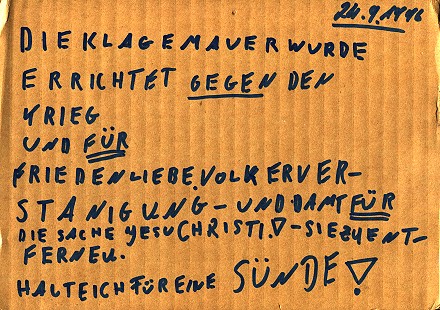 24.9.1996
DIE KLAGEMAUER WURDE
ERRICHTET GEGEN DEN
KRIEG
UND FÜR
FRIEDEN LIEBE, VOLKERVER-
STANIGUNG - UND DAMT FÜR
DIE SACHE YESU CHRISTI! - SIE ZU ENT-
FERNEN.
HALTE ICH FÜR EINE SÜNDE!